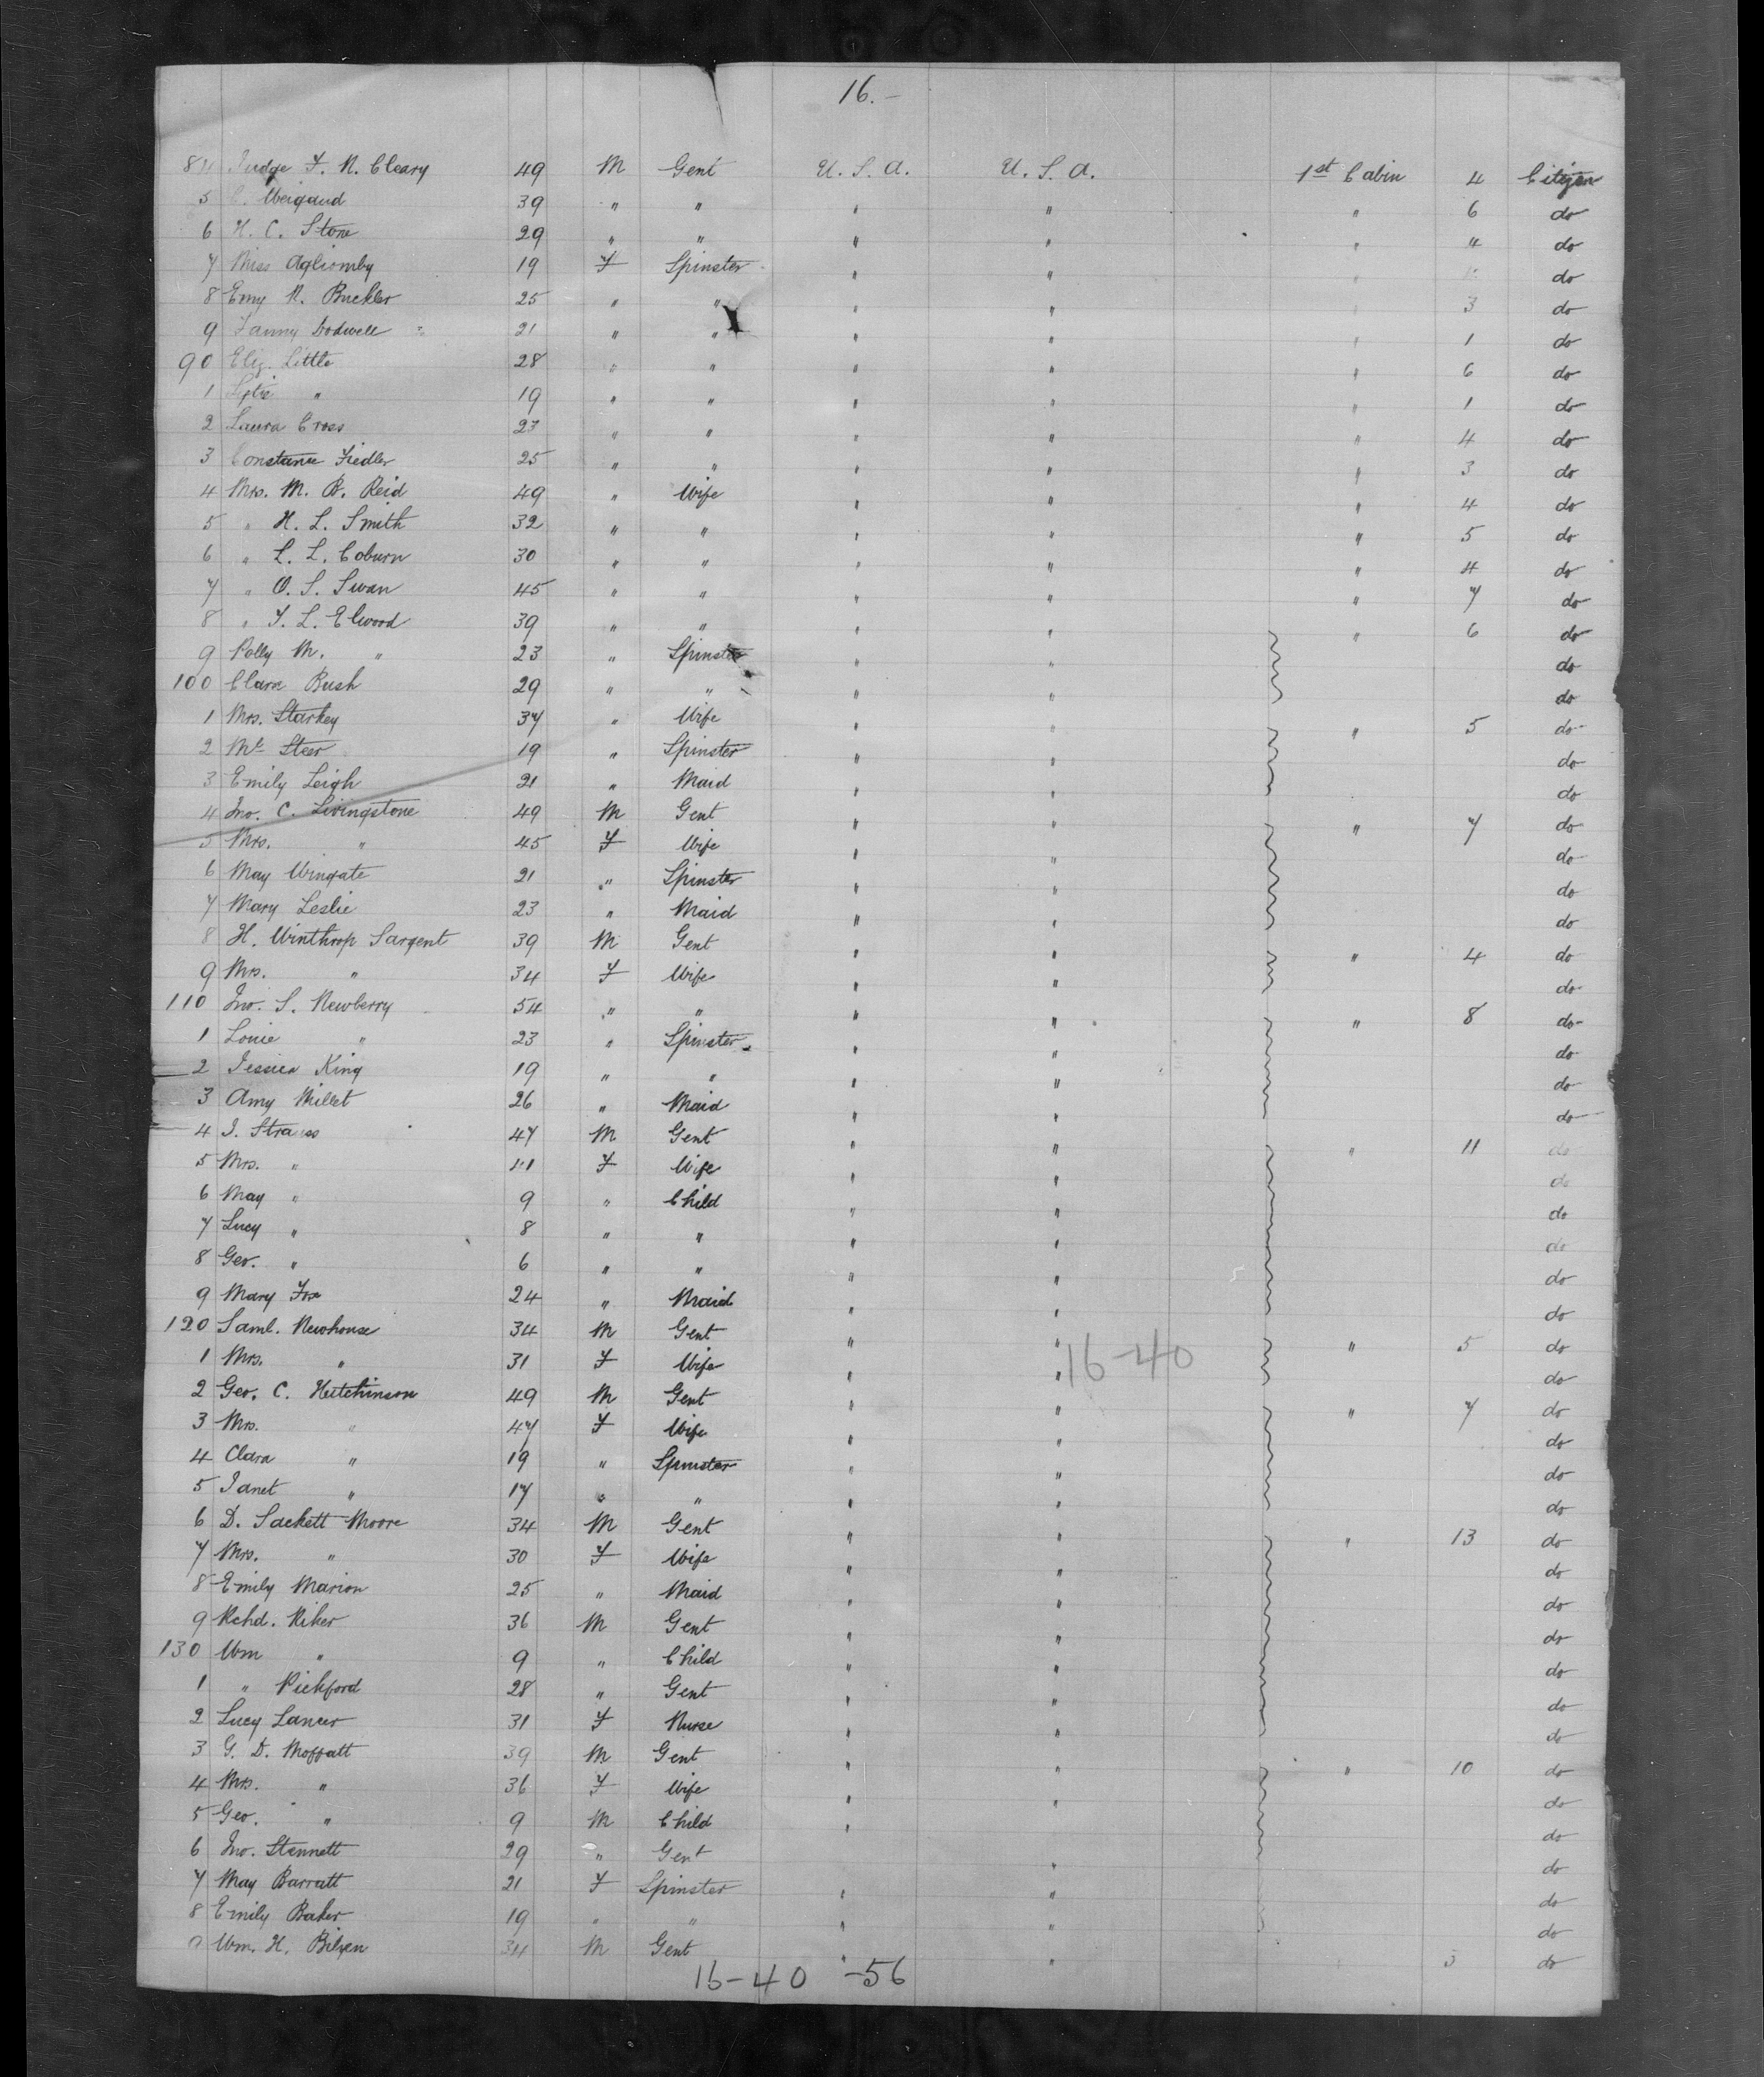 16.-
84 Judge F. N. Cleary 49 M Gent U. S. A. U. S. A. 1st Cabin 4 Citizen
5 C. Weigand 39 " " " " " 6 do
6 H. C. Stone 29 " " " " " 4 do
7 Miss Agliomby 19 F Spinster " " " do
8 Emy N. Buckler 25 " " " " " 3 do
9 Fanny Dodwell 21 " " " " " 1 do
90 Eliz. Little 28 " " " " " 6 do
1 " 19 " " " " " 1 do
2 Laura Cross 23 " " " " " 4 do
3 Constance Fiedler 25 " " " " " 3 do
4 Mrs. M. B. Reid 49 " Wife " " " 4 do
5 " H. L. Smith 32 " " " " " 5 do
6 " L. L. Coburn 30 " " " " " 4 do
7 " O. S. Swan 45 " " " " " 7 do
8 " F. L. Elwood 39 " " " " " 6 do
9 Polly M. " 23 " Spinster " " do
100 Clara Bush 29 " " " " do
1 Mrs. Starkey 37 " Wife " " " 5 do
2 Ms Steer 19 " Spinster " " do
3 Emily Leigh 21 " Maid " " do
4 Jno. C. Livingstone 49 M Gent " " " 7 do
5 Mrs. " 45 F Wife " " do
6 May Wingate 21 " Spinster " " do
7 Mary Leslie 23 " Maid " " do
8 H. Winthrop Sargent 39 M Gent " " " 4 do
9 Mrs. " 34 F Wife " " do
110 Jno. S. Newberry 54 " " " " " 8 do
1 Louie " 23 " Spinster " " do
2 Jessica King 19 " " " " do
3 Amy Millet 26 " Maid " " do
4 I. Strauss 47 M Gent " " " 11 do
5 Mrs. " F Wife " " do
6 May " 9 " Child " " do
7 Lucy " 8 " " " " do
8 Geo. " 6 " " " " do
9 Mary Fox 24 " Maid " " do
120 Saml. Newhouse 34 M Gent " " " 5 do
16-40
1 Mrs. " 31 F Wife " " do
2 Geo. C. Hutchinson 49 M Gent " " " 7 do
3 Mrs. " 47 F Wife " " do
4 Clara " 19 " Spinster " " do
5 Janet " 17 " " " " do
6 D. Sackett Moore 34 M Gent " " " 13 do
7 Mrs. " 30 F Wife " " do
8 Emily Marion 25 " Maid " " do
9 Rchd. Riker 36 M Gent " " do
130 Wm " 9 " Child " " do
1 " Pickford 28 " Gent " " do
2 Lucy Lancer 31 F Nurse " " do
3 G. D. Moffatt 39 M Gent " " " 10 do
4 Mrs. " 36 F Wife " " do
5 Geo. " 9 M Child " do
6 Jno. Stennett 29 " Gent " do
7 May Barratt 21 F Spinster " " do
8 Emily Baker 19 " " " " do
9 Wm. H. Bilzen 34 M Gent " " 3 do
16-40 -56